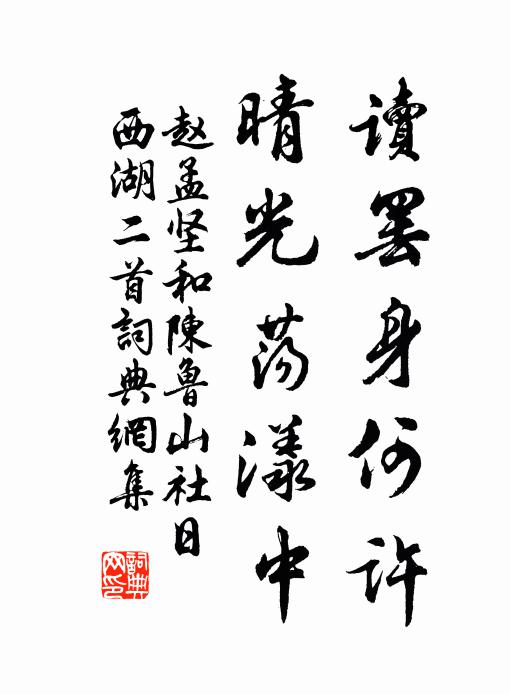 讀罷身何許
晴光蕩漾中
赵孟坚和陳魯山社日
西湖二首詞典網集
詞典網印